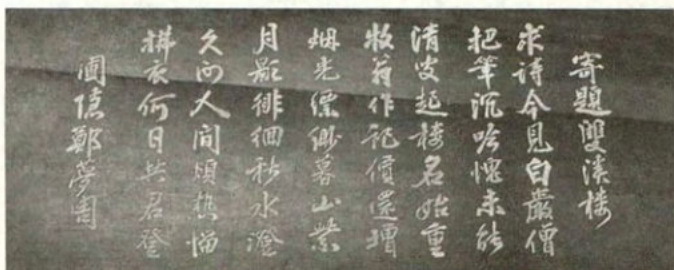 寄題雙溪楼
求詩今見白巖僧
把筆沉吟愧未能
清叟起楼名始重
牧翁作記價還增
烟光縹緲暮山紫
月影徘徊秋水澄
久向人間煩熱惱
拂衣何日共君登
圃隱鄭夢周